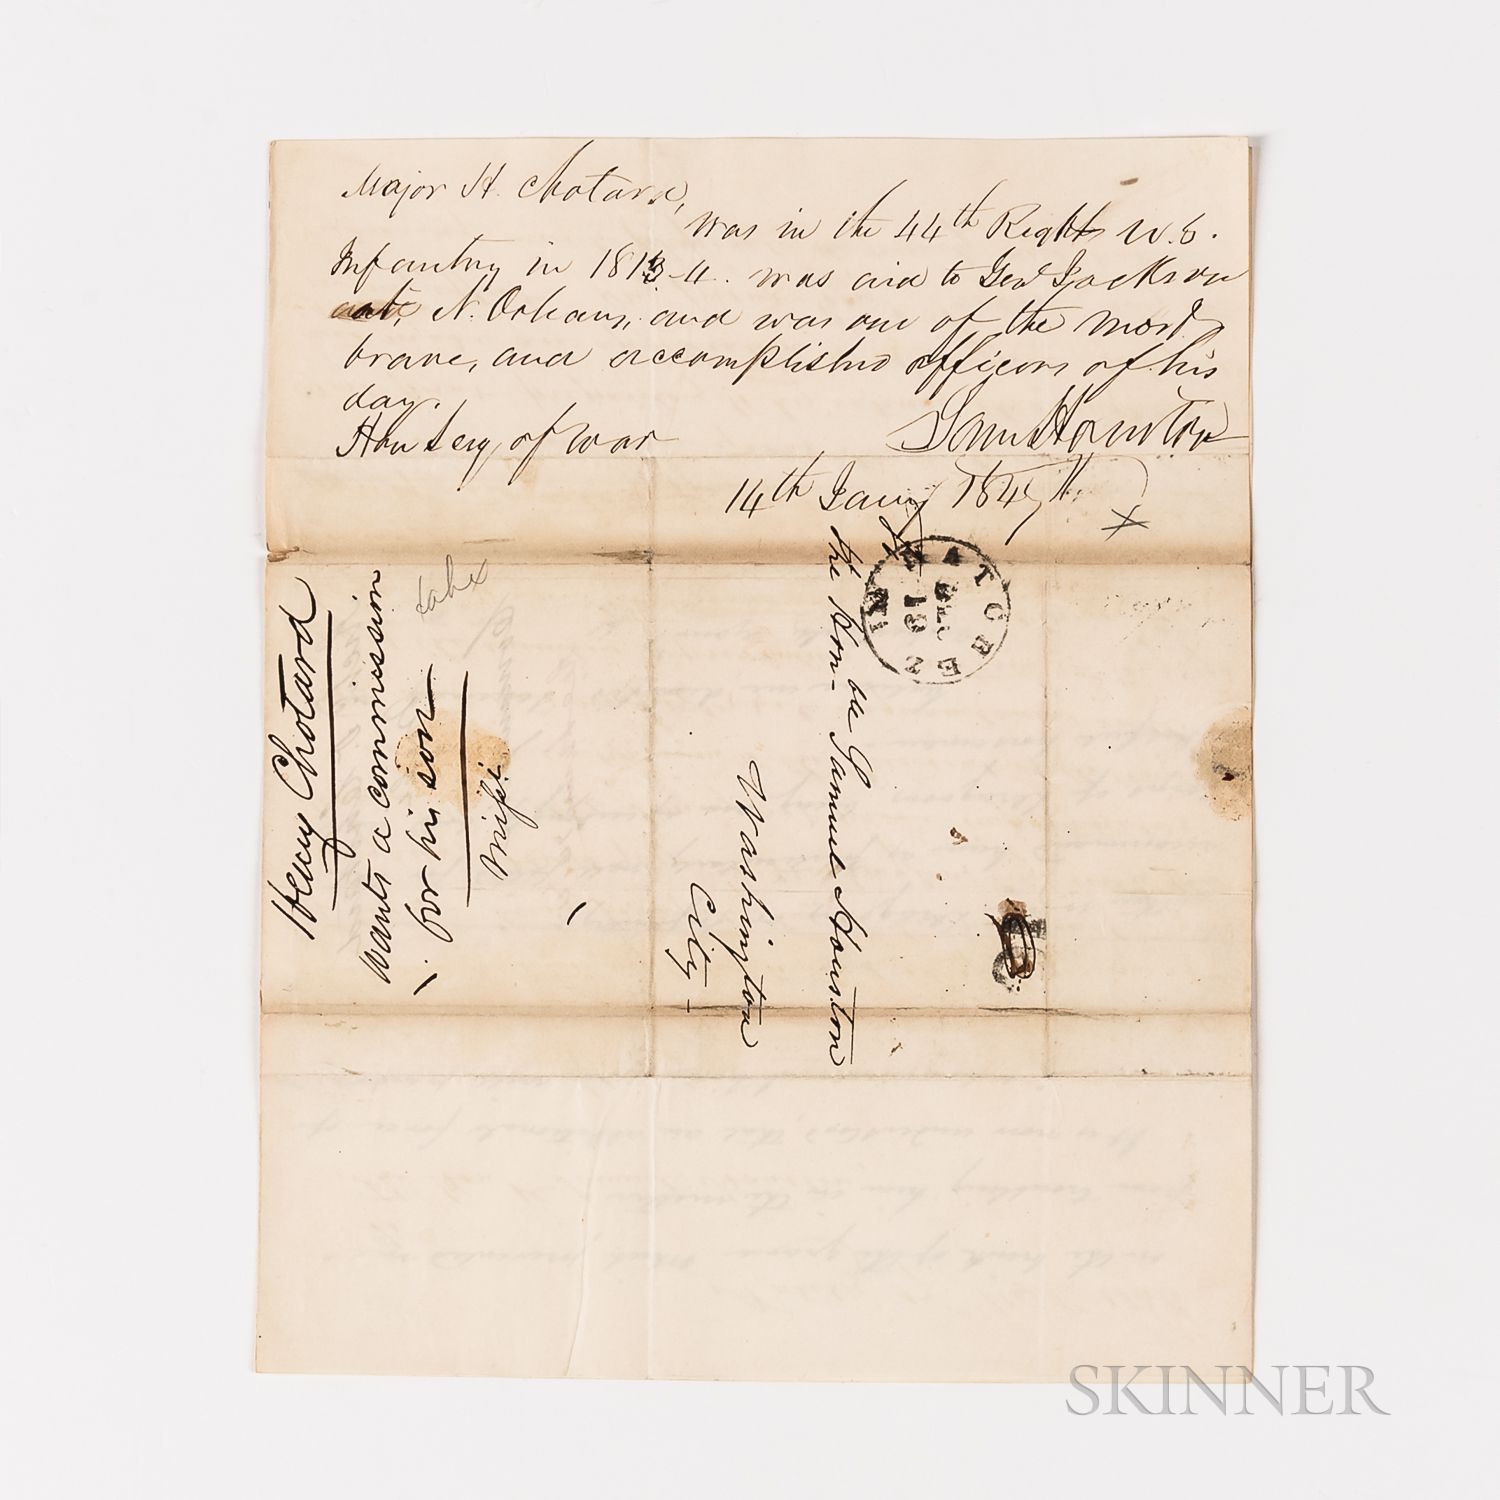 Major H. Chotard,
was in the 44th Regt U.S.
Infantry in 1813-4. was aid to Genl Jackson
at, N. Orleans, and was one of the most
brave, and accomplished officers of his
day.
Hon Secy, of War
Sam Houston
14th Jany 1847
Henry Chotard
wants a commission
for his son
Missi.
NATCHEZ
Mi
DEC
31
The Honble Samuel Houston
Washington
City-
10
SKINNER